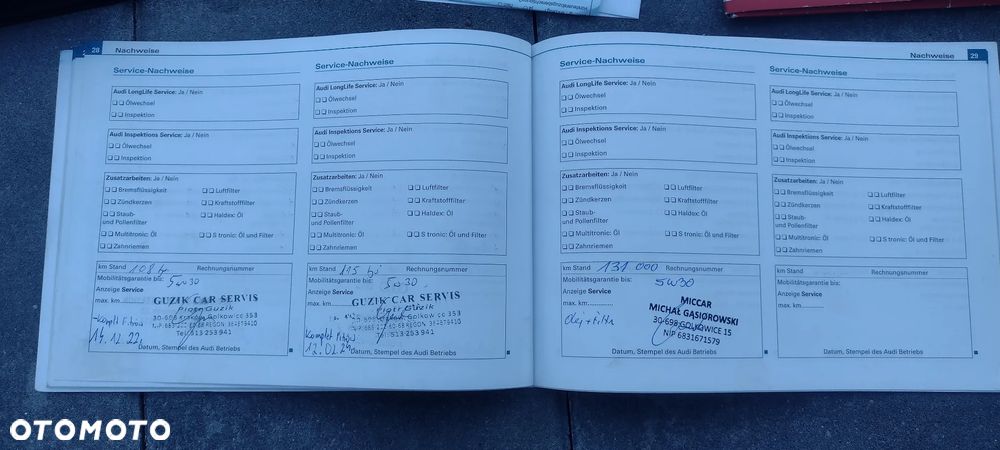 28 Nachweise
Service-Nachweise
Audi LongLife Service: Ja / Nein
Ölwechsel
Inspektion
Audi Inspektions Service: Ja / Nein
Ölwechsel
Inspektion
Zusatzarbeiten: Ja / Nein
Bremsflüssigkeit Luftfilter
Zündkerzen Kraftstofffilter
Staub- Haldex: Öl
und Pollenfilter
Multitronic: Öl S tronic: Öl und Filter
Zahnriemen
km Stand 108 Rechnungsnummer
Mobilitätsgarantie bis: 5w30
Anzeige Service
max. km
GUZIK CAR SERVIS
Piotr Guzik
Tel. 513 253 941
14.12.22
Datum, Stempel des Audi Betriebs
Service-Nachweise
Audi LongLife Service: Ja / Nein
Ölwechsel
Inspektion
Audi Inspektions Service: Ja / Nein
Ölwechsel
Inspektion
Zusatzarbeiten: Ja / Nein
Bremsflüssigkeit Luftfilter
Zündkerzen Kraftstofffilter
Staub- Haldex: Öl
und Pollenfilter
Multitronic: Öl S tronic: Öl und Filter
Zahnriemen
km Stand 115 Rechnungsnummer
Mobilitätsgarantie bis: 5w30
Anzeige Service
max. km
GUZIK CAR SERVIS
Piotr Guzik
Tel. 513 253 941
Datum, Stempel des Audi Betriebs
Nachweise 29
Service-Nachweise
Audi LongLife Service: Ja / Nein
Ölwechsel
Inspektion
Audi Inspektions Service: Ja / Nein
Ölwechsel
Inspektion
Zusatzarbeiten: Ja / Nein
Bremsflüssigkeit Luftfilter
Zündkerzen Kraftstofffilter
Staub- Haldex: Öl
und Pollenfilter
Multitronic: Öl S tronic: Öl und Filter
Zahnriemen
km Stand 131 000 Rechnungsnummer
Mobilitätsgarantie bis: 5w30
Anzeige Service
max. km
Olej + filtr
MICCAR
MICHAŁ GĄSIOROWSKI
30-698 GOLKOWICE 15
NIP 6831671579
Datum, Stempel des Audi Betriebs
Service-Nachweise
Audi LongLife Service: Ja / Nein
Ölwechsel
Inspektion
Audi Inspektions Service: Ja / Nein
Ölwechsel
Inspektion
Zusatzarbeiten: Ja / Nein
Bremsflüssigkeit Luftfilter
Zündkerzen Kraftstofffilter
Staub- Haldex: Öl
und Pollenfilter
Multitronic: Öl S tronic: Öl und Filter
Zahnriemen
km Stand Rechnungsnummer
Mobilitätsgarantie bis:
Anzeige Service
max. km
Datum, Stempel des Audi Betriebs
OTOMOTO